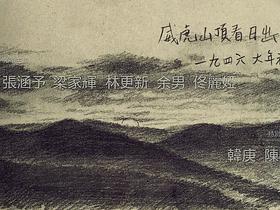 威虎山頂看日出
一九四六年元
張涵予 梁家輝 林更新 余男 佟麗婭
特別
韓庚 陳